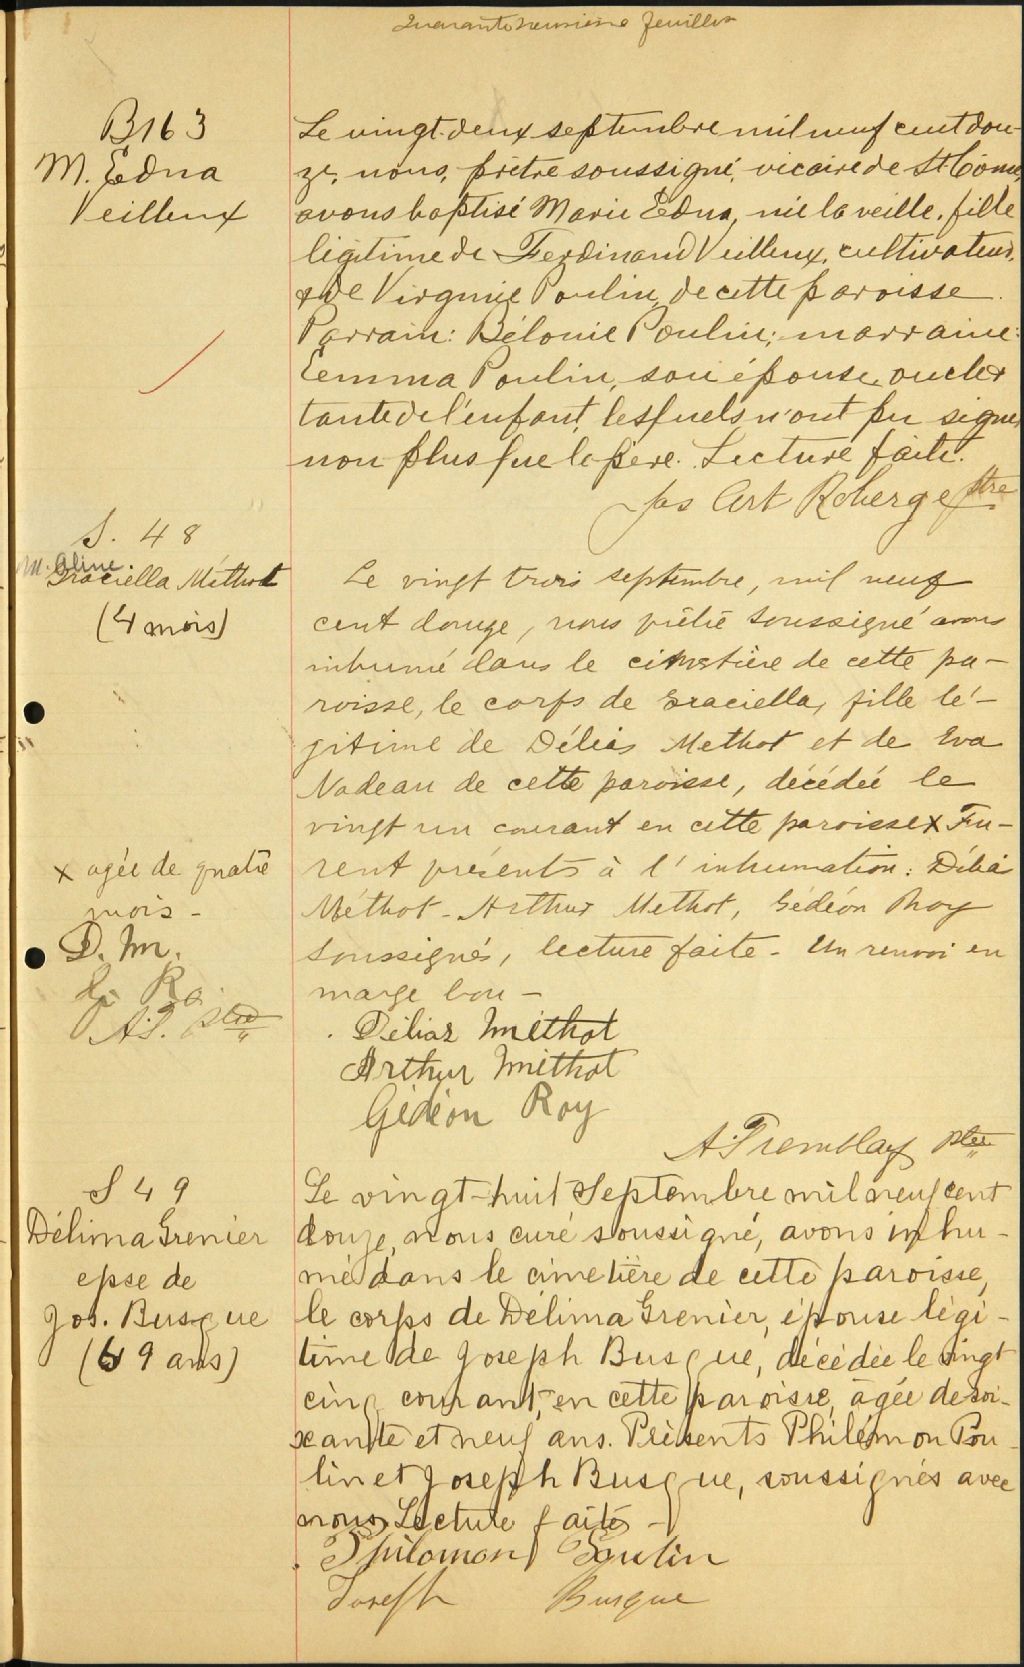 Quarante neuvième feuillet
B163
M. Edna
Veilleux
Le vingt-deux septembre mil neuf cent dou-
ze, nous, prêtre soussigné, vicaire de St-Côme,
avons baptisé Marie Edna, née la veille, fille
légitime de Ferdinand Veilleux, cultivateur,
& de Virginie Poulin, de cette paroisse.
Parrain: Bélonie Poulin; marraine:
Eemma Poulin, son épouse, oncle &
tante de l'enfant, lesquels n'ont pu signer
non plus que le père. Lecture faite.
Jos Art Roberge ptre
S. 48
M. Aline
Graciella Méthot
(4 mois)
Le vingt trois septembre, mil neuf
cent douze, nous prêtre soussigné avons
inhumé dans le cimetière de cette pa-
roisse, le corps de Graciella, fille lé-
gitime de Délias Methot et de Eva
Nadeau de cette paroisse, décédée le
vingt un courant en cette paroisse x Fu-
rent présents à l'inhumation: Délias
Méthot - Arthur Methot, Gédéon Roy
soussignés, lecture faite - Un renvoi en
marge bon -
x agée de quatre
mois -
D. M.
G. Ro.
A.T. ptre
Délias Méthot
Arthur Méthot
Gédéon Roy
A. Tremblay ptre
S 49
Délima Grenier
epse de
Jos. Busque
(69 ans)
Le vingt-huit Septembre mil neuf cent
douze, nous curé soussigné, avons inhu-
mé dans le cimetière de cette paroisse,
le corps de Délima Grenier, épouse légi-
time de Joseph Busque, décédée le vingt
cinq courant, en cette paroisse, âgée de soi-
xante et neuf ans. Présents Philémon Pou-
lin et Joseph Busque, soussignés avec
nous, Lecture faite -
Philomon Poulin
Joseph Busque